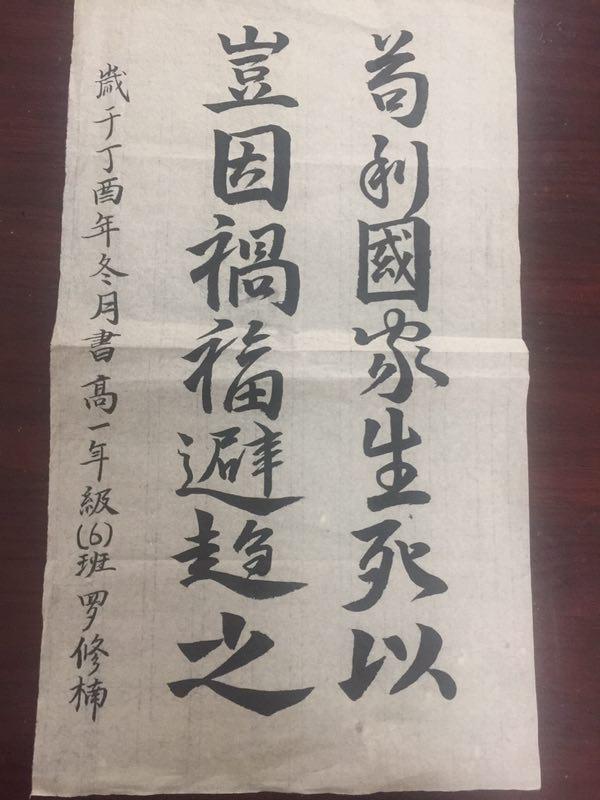 苟利國家生死以
豈因禍福避趋之
歲于丁酉年冬月書高一年級(6)班罗修楠